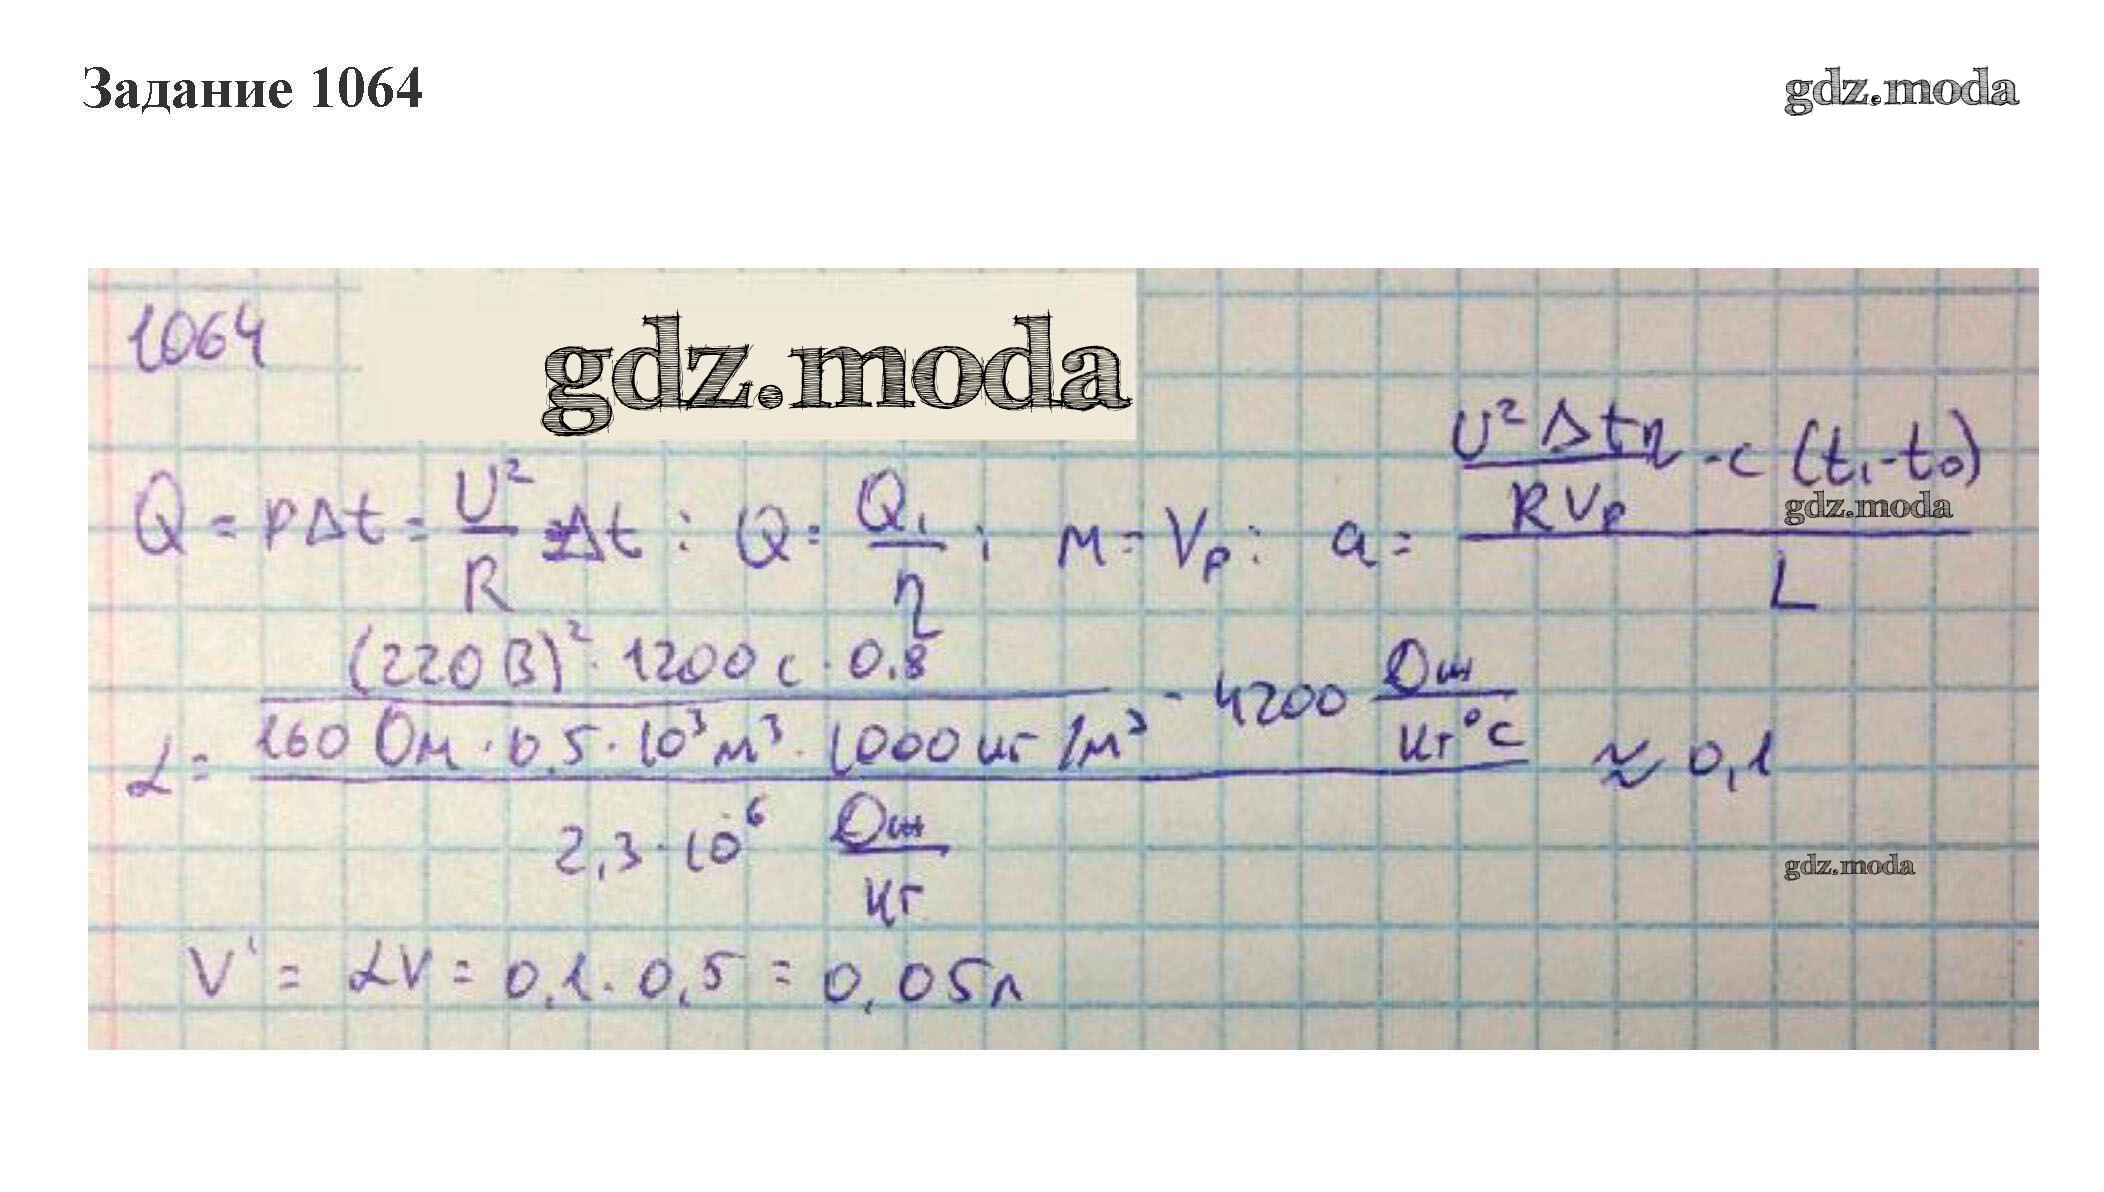 Задание 1064
gdz.moda
1064
gdz.moda
Q = PΔt = U²/R Δt ; Q = Q₁/η ; м = Vρ ; a = (U²Δtη/RVρ - c (t₁-t₀))/L
gdz.moda
α = ((220 В)² · 1200 с · 0,8 / 160 Ом · 0,5 · 10³ м³ · 1000 кг/м³ - 4200 Дж/кг°С) / 2,3 · 10⁶ Дж/кг ≈ 0,1
gdz.moda
V' = αV = 0,1 · 0,5 = 0,05 л